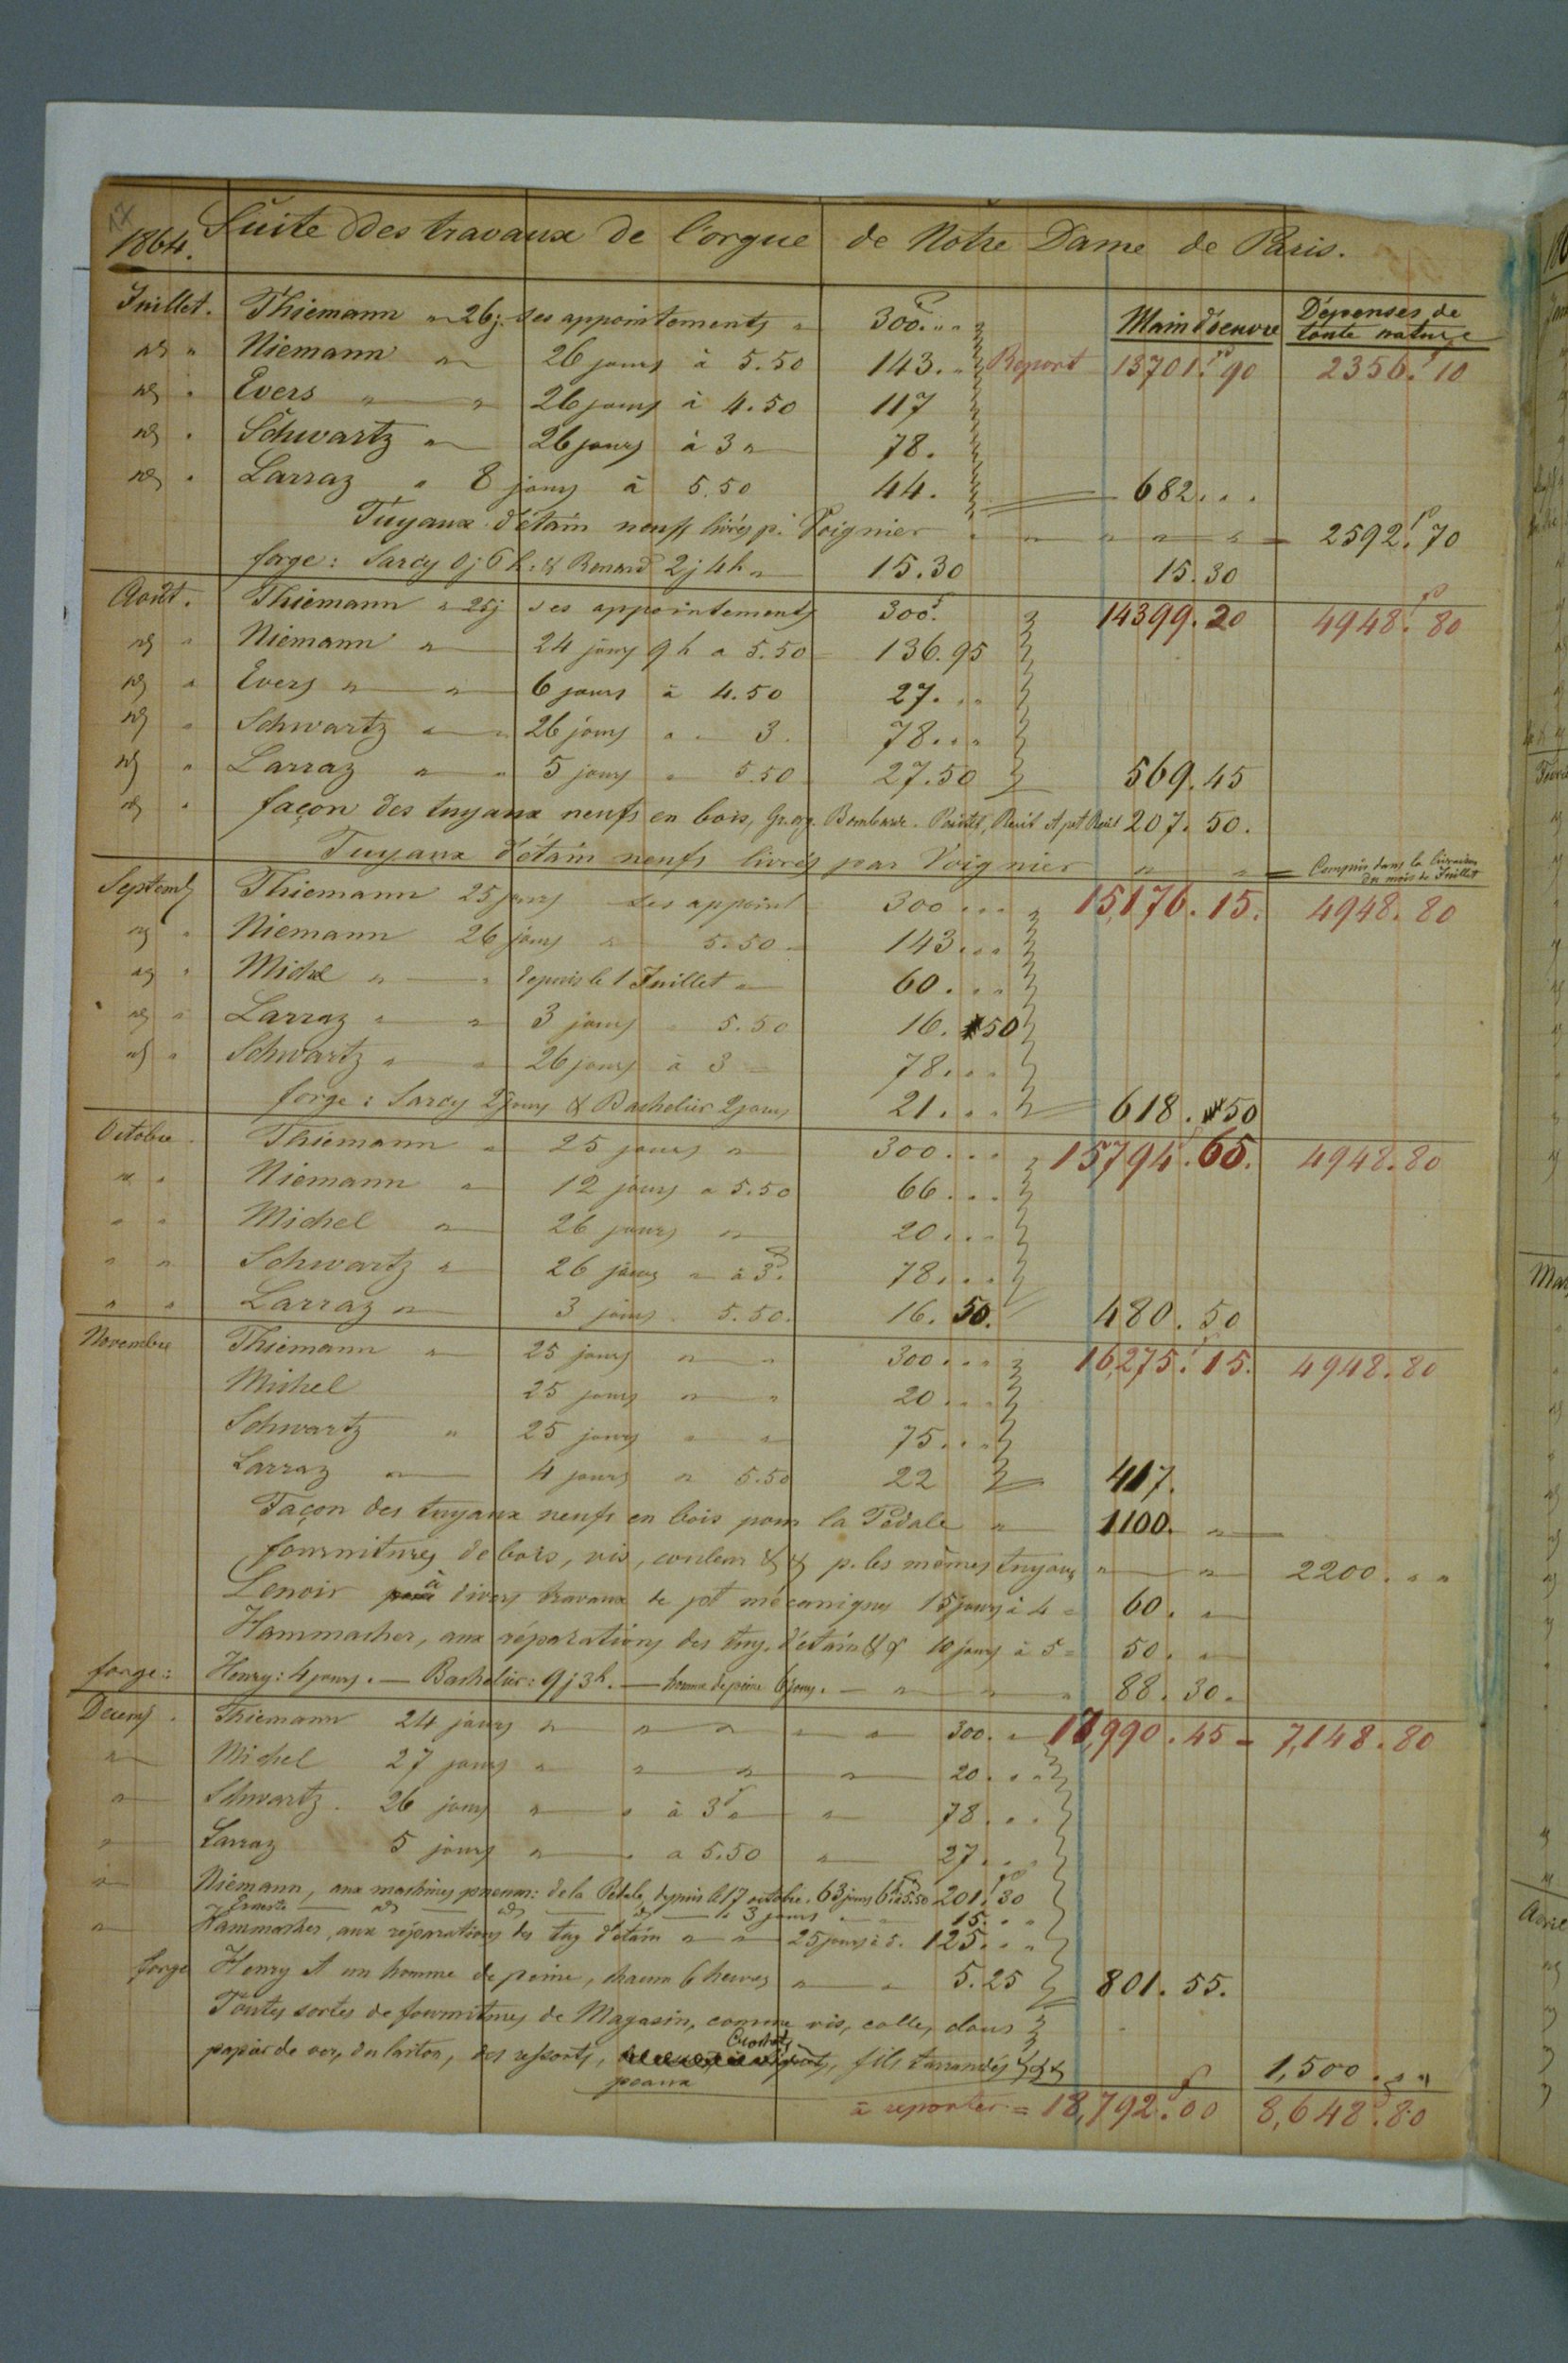 17
1864. Suite des travaux de l'orgue de Notre Dame de Paris.
Main d'oeuvre Dépenses de toute nature
Juillet. Thiemann " 26 j. ses appointements " 300f. " "
id " Niemann " 26 jours à 5.50 143. " Report 13701f. 90 2356f. 10
id " Evers " " 26 jours à 4.50 117
id " Schwartz " 26 jours à 3 " 78.
id " Larraz " 8 jours à 5.50 44. 682. . .
Tuyaux d'étain neufs livrés p. Voignier " " " " = 2592f. 70
forge: Sarcy 0 j 6 h. & Renard 2 j 4 h " 15.30 15.30
Août. Thiemann " 25 j ses appointements 300f. 14399.20 4948f. 80
id " Niemann " 24 jours 9 h à 5.50 136.95
id " Evers " " 6 jours à 4.50 27. . .
id " Schwartz " " 26 jours " " 3. 78. . .
id " Larraz " " 5 jours " 5.50 27.50 569.45
id " façon des tuyaux neufs en bois, Gr. org. Bombarde. Positif, Récit et pt Récit 207.50.
Tuyaux d'étain neufs livrés par Voignier " " = Compris dans la livraison du mois de Juillet
Septemb Thiemann 25 jours ses appoint 300 . . . 15,176.15. 4948.80
id " Niemann 26 jours " 5.50 " 143 . . .
id " Michel " " depuis le 1 Juillet " 60. . .
id " Larraz " " 3 jours " 5.50 16. 50
id " Schwartz " " 26 jours à 3 " 78. . .
forge: Sarcy 2 jours & Bachelier 2 jours 21. . . 618.50
Octobre. Thiemann " 25 jours " 300. . . 15794f.65. 4948.80
" " Niemann " 12 jours à 5.50 66. . .
" " Michel " 26 jours " 20. . .
" " Schwartz " 26 jours " à 3f. 78. . .
" " Larraz " 3 jours 5.50. 16.50. 480.50
Novembre Thiemann " 25 jours " " 300. . . 16,275f.15. 4948.80
Michel 25 jours " " 20. . .
Schwartz " 25 jours " " 75. . .
Larraz " 4 jours " 5.50 22 417.
Façon des tuyaux neufs en bois pour la Pédale " 1100. "
fournitures de bois, vis, couleur & & p. les mêmes tuyaux " " 2200. " "
Lenoir à divers travaux de pt mécanique 15 jours à 4 = 60. "
Hammacher, aux réparations des tuy. d'étain & & 10 jours à 5 = 50. "
forge: Henry: 4 jours. — Bachelier: 9 j 3 h. — homme de peine 6 jours. " " " 88.30.
Decemb. Thiemann 24 jours " " " " " 300. " 17,990.45 = 7,148.80
" Michel 27 jours " " " " 20. . .
" Schwartz. 26 jours " " à 3f " " 78. . .
" Larraz 5 jours " " à 5.50 " 27. . .
" Niemann, aux machines pneum: de la Pédale, depuis le 17 octobre. 63 jours 6 h à 5.50 201f.30
Erneste id id id 3 jours " " 15. . .
" Hammacher, aux réparations des tuy d'étain " " 25 jours à 5. 125. . .
forge Henry et un homme de peine, chacun 6 heures " " 5.25 801.55.
Toutes sortes de fournitures de Magasin, comme vis, colle, clous
papier de ver, du laiton, des ressorts, Crochets, peaux, fils taraudés & & & 1,500. " "
à reporter = 18,792f.00 8,648f.80